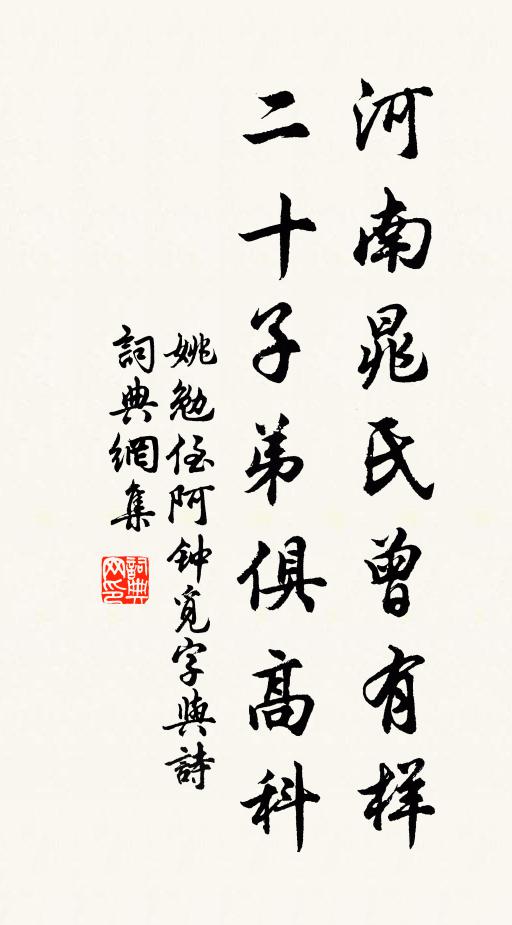 河南晁氏曾有样
二十子弟俱高科
姚勉侄阿钟觅字與詩
詞典網集
詞典网印